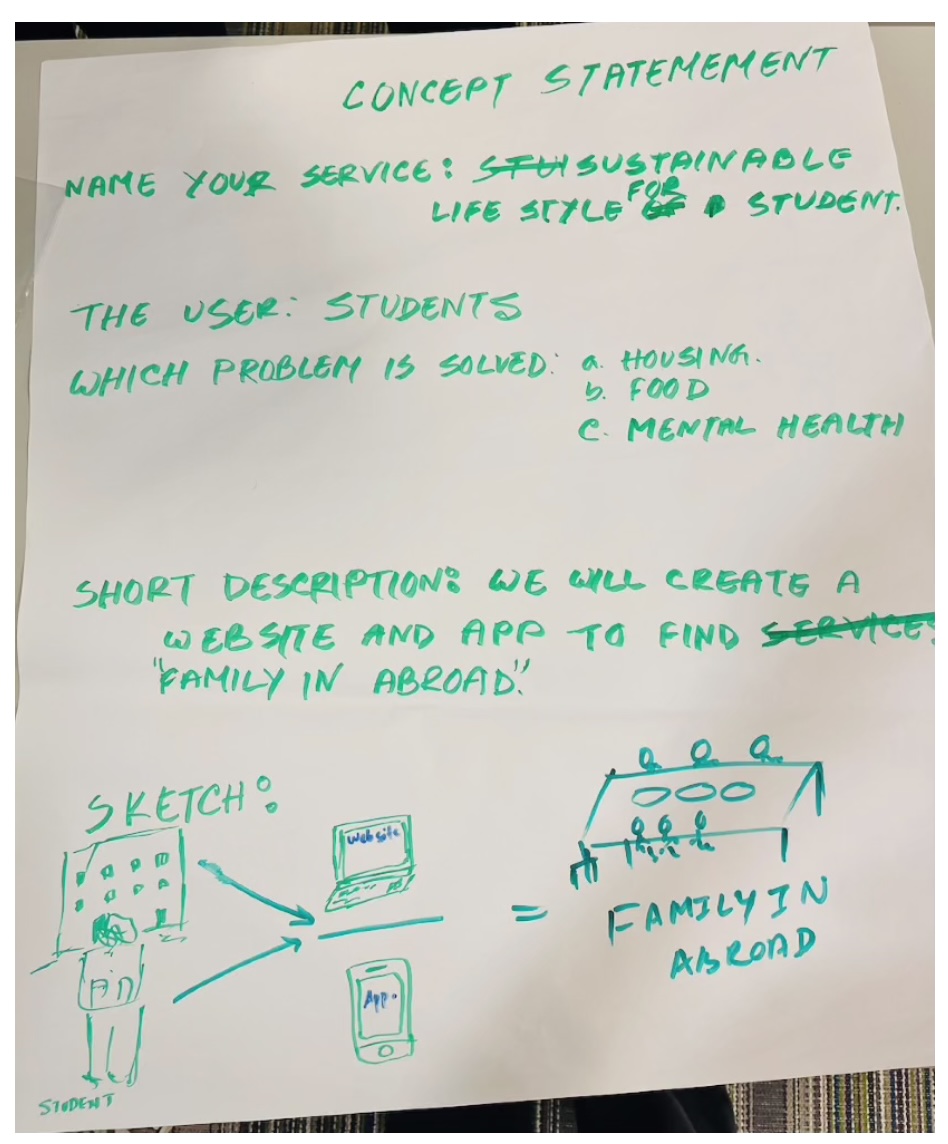 CONCEPT STATEMEMENT
NAME YOUR SERVICE: STU SUSTAINABLE
LIFE STYLE FOR OF STUDENT.
THE USER: STUDENTS
WHICH PROBLEM IS SOLVED: a. HOUSING.
b. FOOD
C. MENTAL HEALTH
SHORT DESCRIPTION: WE WILL CREATE A
WEBSITE AND APP TO FIND SERVICES
"FAMILY IN ABROAD."
SKETCH:
Web site
App.
STUDENT
=
FAMILY IN
ABROAD